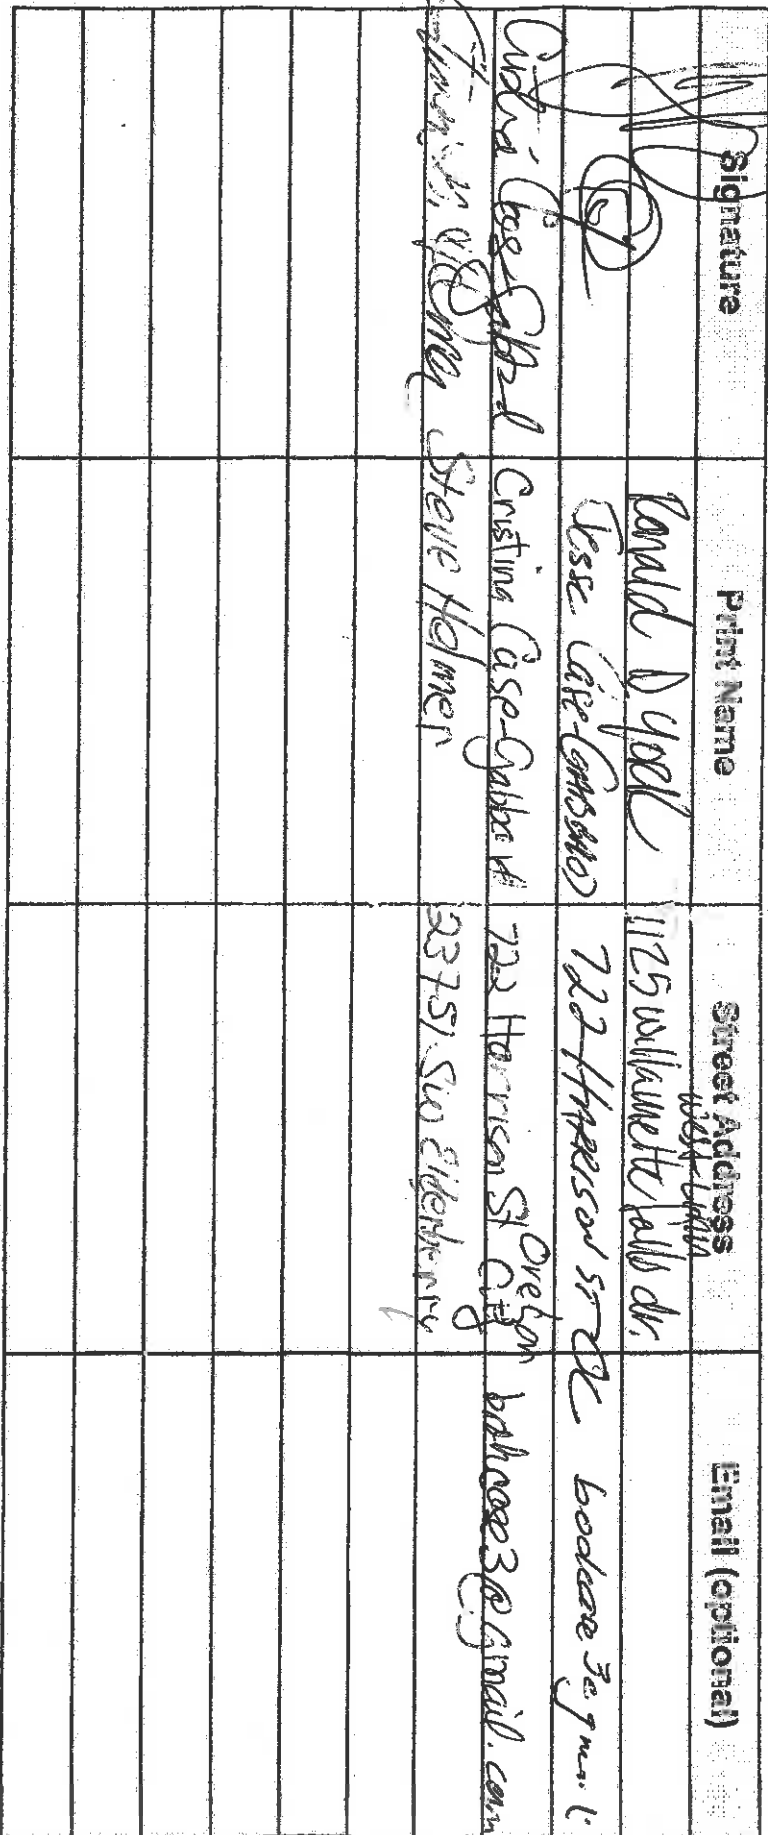 Signature Print Name Street Address Email (optional)
Ronald D York 1125 willamette falls dr. west linn
Jesse Case-Gabbard 722 Harrison ST OC
Cristina Case-Gabbard 722 Harrison St Oregon City @gmail.com
Steve Holmer 23751 SW Elderberry